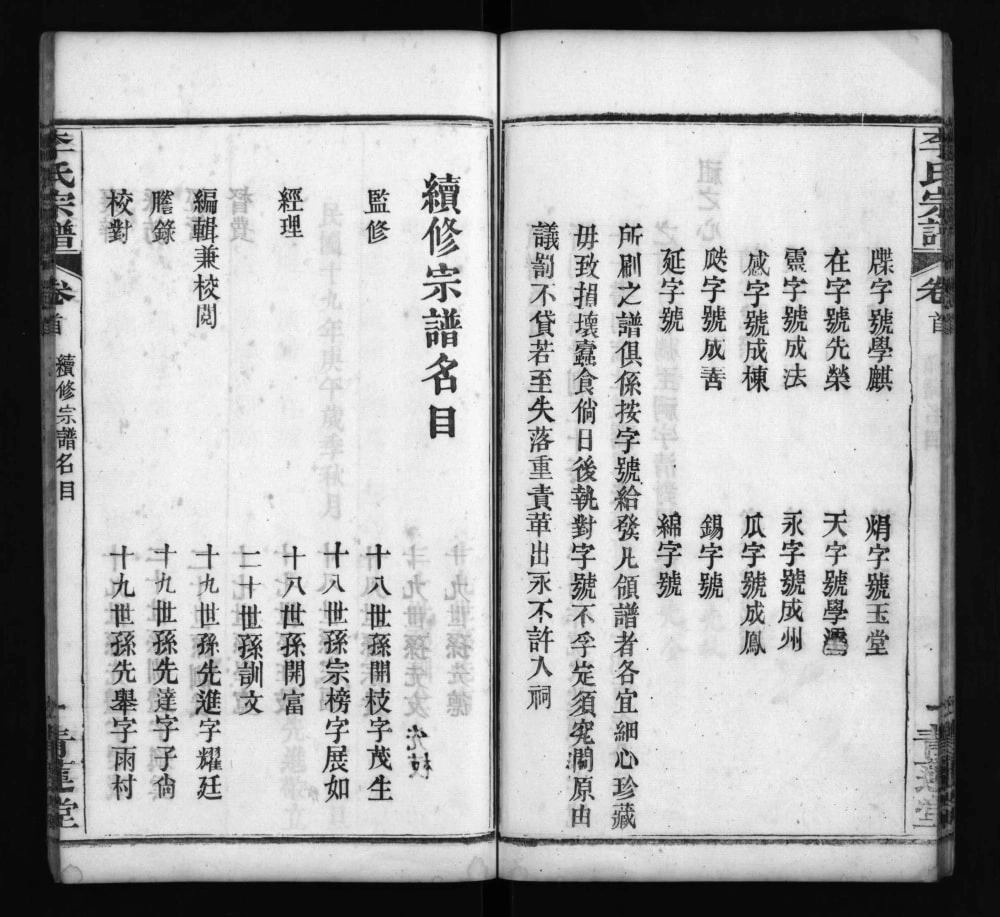 李氏宗譜
卷首
青蓮堂
牒字號學麒
焆字號玉堂
在字號先榮
天字號學
霝字號成法
永字號成州
慼字號成棟
瓜字號成鳳
瓞字號成善
錫字號
延字號
綿字號
所刷之譜俱係按字號給發凡領譜者各宜細心珍藏
毋致損壞蠹食倘日後執對字號不孚定須究闗原由
議罰不貸若至失落重責革出永不許入祠
續修宗譜名目
監修
十八世孫開枝字茂生
十八世孫宗榜字展如
經理
十八世孫開富
二十世孫訓文
編輯兼校閱
十九世孫先進字耀廷
謄錄
十九世孫先達字子倘
校對
十九世孫先舉字雨村
李氏宗譜
卷首
續修宗譜名目
一
青蓮堂